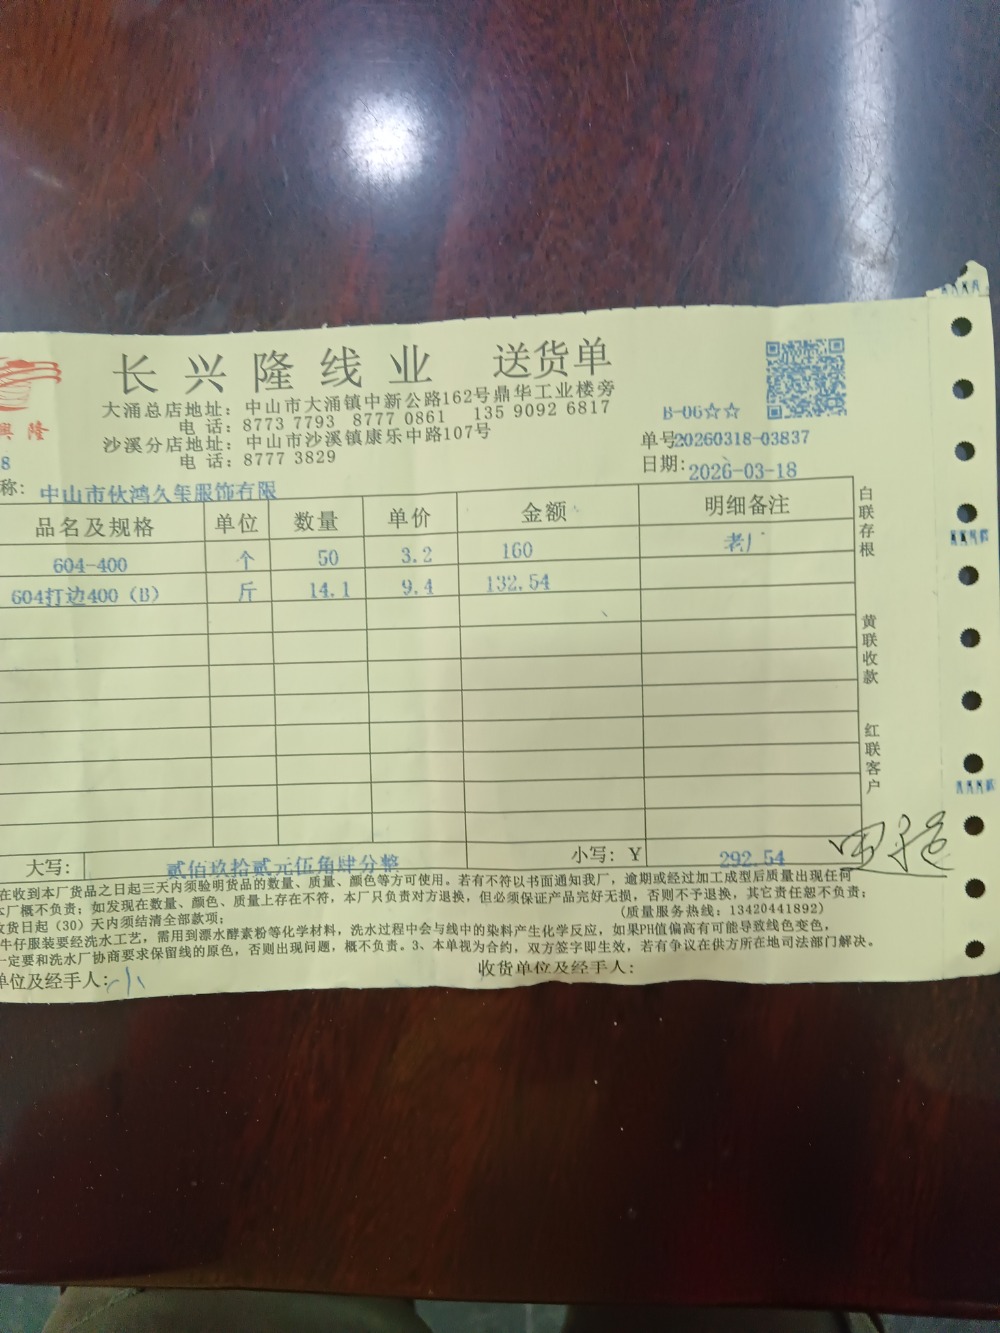 长兴隆线业 送货单
興隆
大涌总店地址：中山市大涌镇中新公路162号鼎华工业楼旁
电 话：8773 7793 8777 0861 135 9092 6817
沙溪分店地址：中山市沙溪镇康乐中路107号
电 话：8777 3829
B-06☆☆
单号20260318-03837
日期：2026-03-18
8
称：中山市伙鸿久玺服饰有限
品名及规格 单位 数量 单价 金额 明细备注
604-400 个 50 3.2 160 老厂
604打边400（B） 斤 14.1 9.4 132.54
白联存根
黄联收款
红联客户
大写： 贰佰玖拾贰元伍角肆分整 小写：Y 292.54
在收到本厂货品之日起三天内须验明货品的数量、质量、颜色等方可使用。若有不符以书面通知我厂，逾期或经过加工成型后质量出现任何
本厂概不负责；如发现在数量、颜色、质量上存在不符，本厂只负责对方退换，但必须保证产品完好无损，否则不予退换，其它责任恕不负责；
收货日起（30）天内须结清全部款项； （质量服务热线：13420441892）
牛仔服装要经洗水工艺，需用到漂水酵素粉等化学材料，洗水过程中会与线中的染料产生化学反应，如果PH值偏高有可能导致线色变色，
一定要和洗水厂协商要求保留线的原色，否则出现问题，概不负责。3、本单视为合约，双方签字即生效，若有争议在供方所在地司法部门解决。
单位及经手人： 收货单位及经手人：